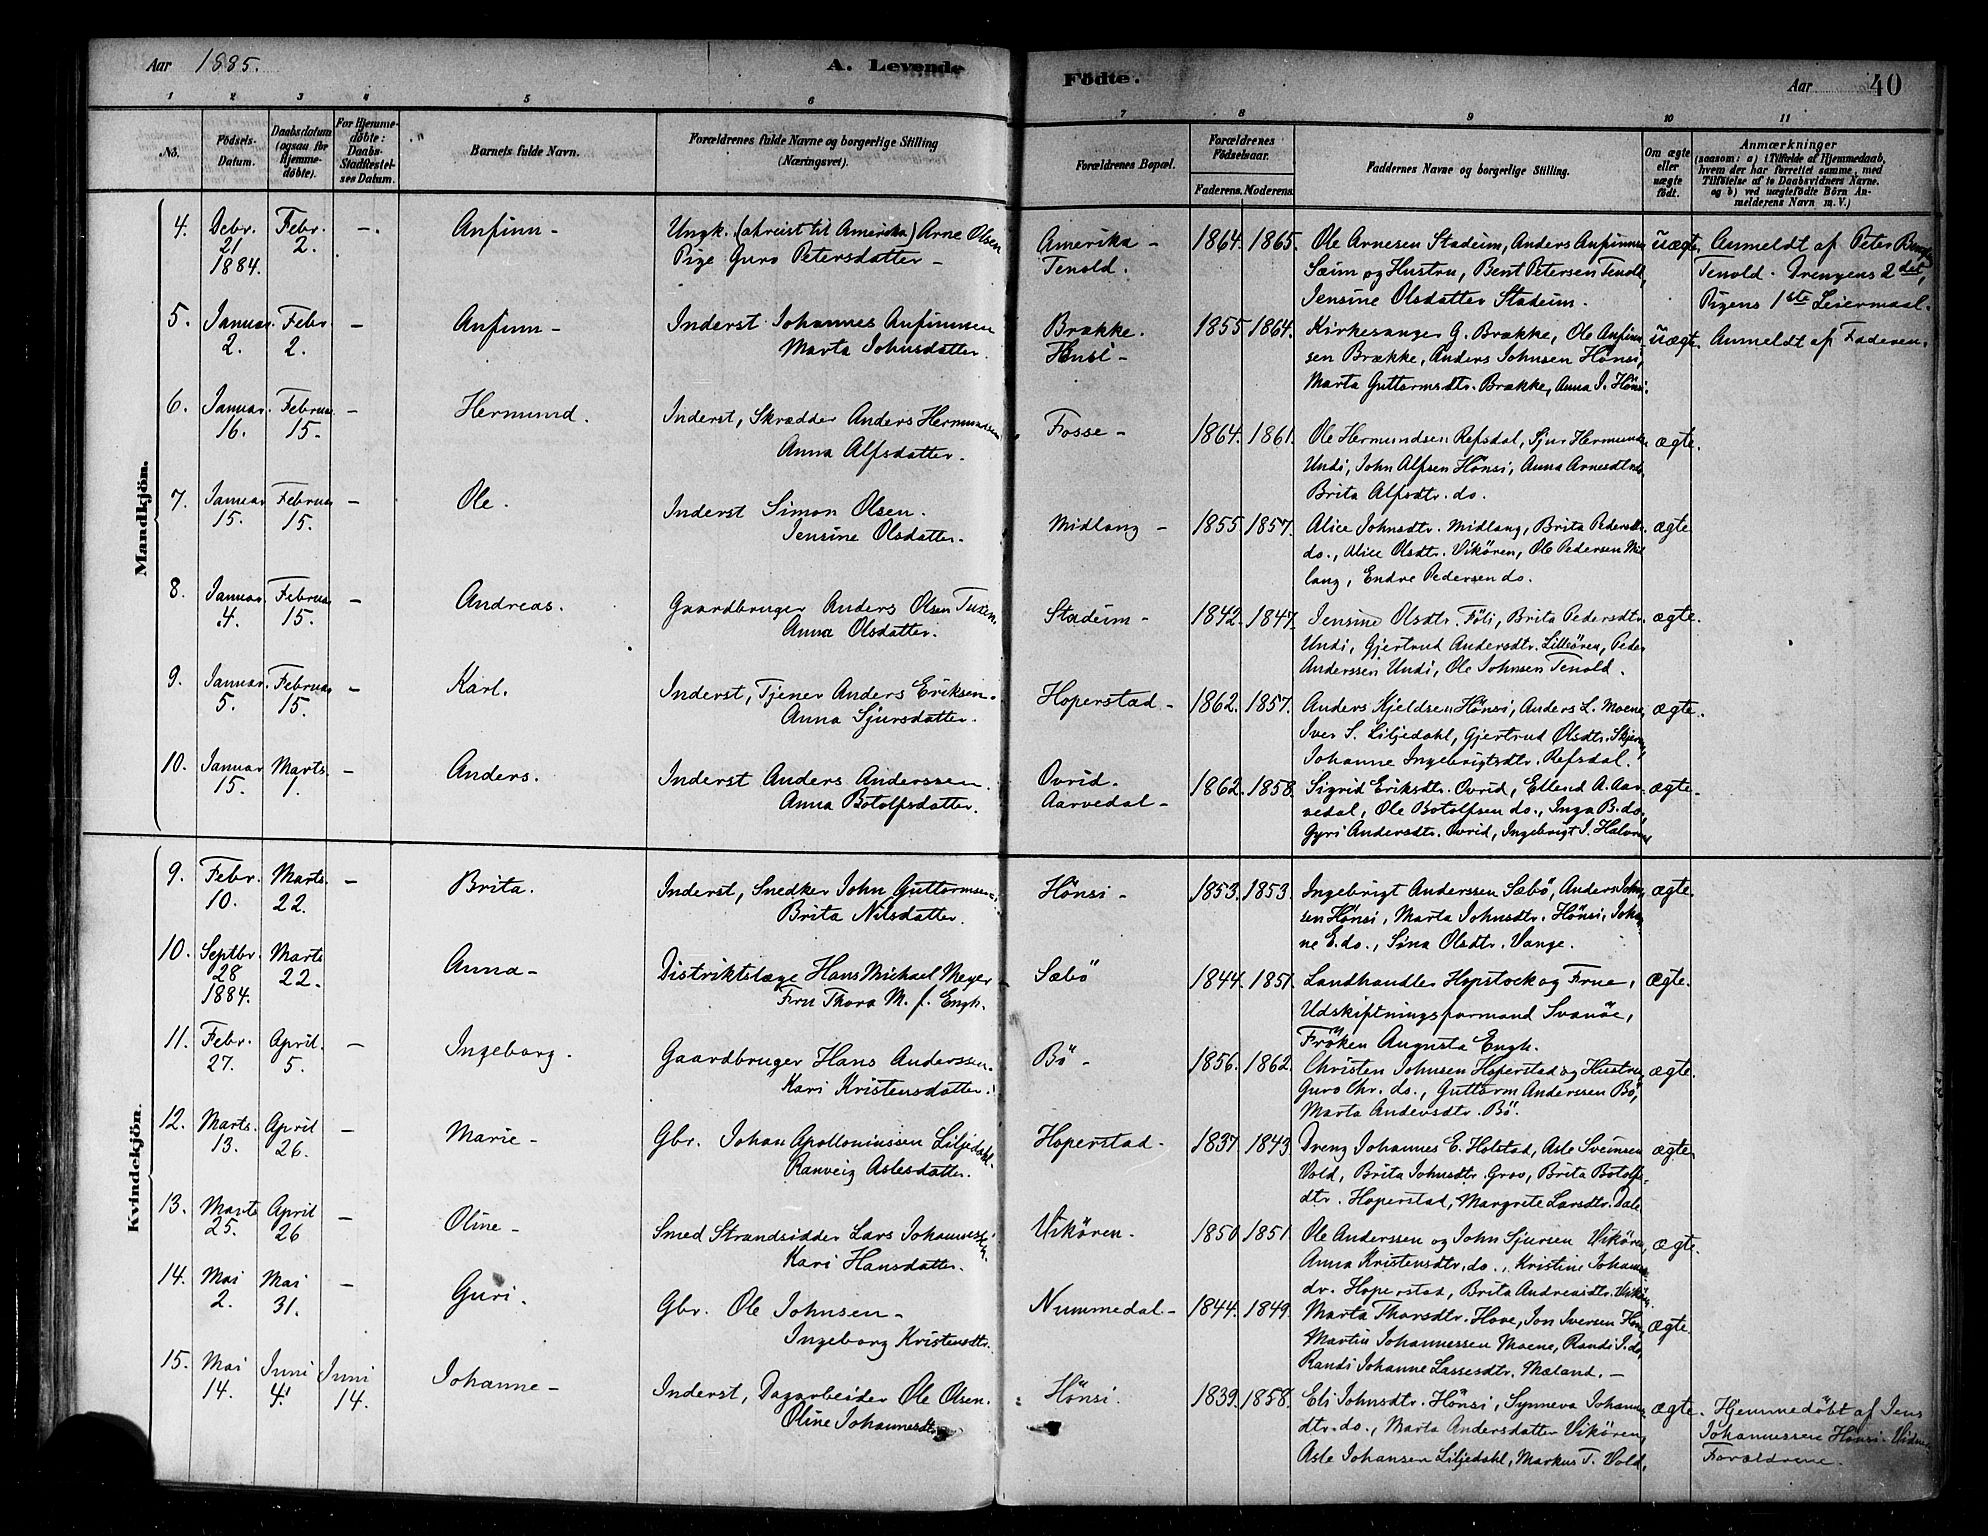 Aar 1885.
A. Levende
Födte.
Aar 40
1 2 3 4 5 6 7 8 9 10 11
No.
Födsels-
Datum.
Daabsdatum
(ogsaa for
Hjemme-
döbte).
For Hjemme-
døbte:
Daabs-
Stadfæstel-
ses Datum.
Barnets fulde Navn.
Forældrenes fulde Navne og borgerlige Stilling
(Næringsvei).
Forældrenes Bopæl.
Forældrenes
Födselsaar.
Faderens. Moderens.
Faddernes Navne og borgerlige Stilling.
Om ægte
eller
uægte
født.
Anmærkninger
(saasom: a) i Tilfælde af Hjemmedaab,
hvem der har forrettet samme, med
Tilföielse af to Daabsvidners Navne.
og b) ved uægtefödte Börn An-
melderens Navn m. V.)
Mandkjön.
4. Debr. 21 1884. Febr. 2. -. Anfinn -
Ungk. (afreist til Amerika) Arne Olsen
Pige Guro Petersdatter -
Amerika -
Tenold.
1864. 1865.
Ole Arnesen Stadeim, Anders Anfinnsen
Sæim og Hustru, Bent Petersen Tenold,
Jensine Olsdatter Stadeim.
uægte.
Anmeldt af Peter
Tenold. Drengens 2det,
Pigens 1ste Leiermaal.
5. Januar. 2. Febr 2. - Anfinn -
Inderst Johannes Anfinnsen
Marta Johnsdatter.
Brække.
Hønsi -
1855 1864.
Kirkesanger G. Brække, Ole Anfinn-
sen Brække, Anders Johnsen Hönsi,
Marta Guttormsdtr. Brække, Anna J. Hönsi.
uægte.
Anmeldt af Faderen.
6. Januar. 16. Februar 15. - Hermund.
Inderst, Skrædder Anders Hermundsen
Anna Alfsdatter.
Fosse -
1864. 1861.
Ole Hermundsen Refsdal, Sjur Hermunds.
Undi, John Alfsen Hönsi, Anna Arnesdtr. do.
Brita Alfsdtr. do.
ægte.
7. Januar 15. Februar 15. - Ole.
Inderst Simon Olsen.
Jensine Olsdatter.
Midlang -
1855 1857.
Alice Johnsdtr. Midlang, Brita Pedersdtr.
do., Alice Olsdtr. Vikören, Ole Pedersen Mid-
lang, Endre Pedersen do.
ægte
8. Januar. 4. Februar 15. - Andreas.
Gaardbruger Anders Olsen Tuxen
Anna Olsdatter.
Stadeim -
1842. 1847.
Jensine Olsdtr. Föli, Brita Pedersdtr.
Undi, Gjertrud Andersdtr. Lillesören, Peder
Anderssen Undi, Ole Johnsen Tenold.
ægte.
9. Januar. 5. Februar 15. - Karl.
Inderst, Tjener Anders Eriksen.
Anna Sjursdatter.
Hoperstad -
1862. 1857.
Anders Kjeldsen Hönsi, Anders L. Moene,
Iver S. Liljedahl, Gjertrud Olsdtr.
Johanne Ingebrigtsdtr. Refsdal.
ægte.
10. Januar 15. Marts. 1. - Anders.
Inderst Anders Anderssen.
Anna Botolfsdatter.
Ovrid.
Aarvedal -
1862. 1858.
Sigrid Eriksdtr. Ovrid, Ellend A. Aar-
vedal, Ole Botolfsen do., Inga B. do.,
Gyri Andersdtr. Ovrid, Ingebrigt J.
ægte.
Kvindekjön.
9. Febr. 10. Marts. 22. - Brita.
Inderst, Snedker John Guttormsen.
Brita Nilsdatter.
Hönsi -
1853. 1853.
Ingebrigt Anderssen Sæbö, Anders John-
sen Hönsi, Marta Johnsdtr. Hönsi, Johan-
ne E. do., Sina Olsdtr. Vange.
ægte.
10. Septbr. 28 1884. Marts 22. Anna -
Distriktslæge Hans Michael Meyer
Fru Thora M. f. Engh.
Sæbö
1844. 1851.
Landhandler Hopstock og Frue,
Udskiftningsformand Svanöe,
Fröken Augusta Engh.
ægte.
11. Febr. 27. April. 5. - Ingeborg.
Gaardbruger Hans Anderssen.
Kari Kristensdatter.
Bö -
1856. 1862.
Christen Johnsen Hoperstad og Hustru,
Guro Chr. do., Guttorm Anderssen Bö,
Marta Andersdtr. Bö.
ægte.
12. Marts. 13. April 26. - Marie -
Gbr. Johan Apolloniussen Liljedahl.
Ranveig Aslesdatter.
Hoperstad.
1837 1843
Dreng Johannes E. Holstad, Asle Sveinsen
Vold, Brita Johnsdtr. Grov, Brita Botolfs-
dtr. Hoperstad, Margrete Larsdtr. Dale
ægte.
13. Marts 25. April 26 - Oline -
Smed Strandsidder Lars Johannessen.
Kari Hansdatter.
Vikören.
1850 1851
Ole Anderssen og John Sjursen Vikören,
Anna Kristensdtr. do., Kristine Johannes-
dr. Hoperstad, Brita Andreasdtr. Vikören.
ægte.
14. Mai 2. Mai 31. - Guri.
Gbr. Ole Johnsen -
Ingeborg Kristensdtr.
Nummedal -
1844. 1849.
Marta Thorsdtr. Hove, Jon Iversen Hove,
Martin Johannessen Moene, Randi I. do,
Randi Johanne Lassesdtr. Mæland. -
ægte
15. Mai 14. Juni 4. Juni 14. Johanne -
Inderst, Dagarbeider Ole Olsen.
Oline Johannesdtr.
Hönsi.
1839. 1858.
Eli Johnsdtr. Hönsi, Synneva Johannes-
dtr. do., Marta Andersdatter Vikören,
Asle Johansen Liljedahl, Markus T. Vold.
ægte.
Hjemmedöbt af Jens
Johannessen Hönsi. Vidner
Forældrene.